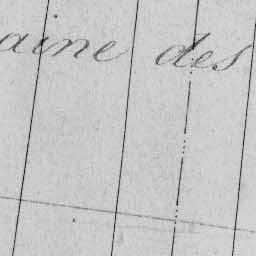 aine des